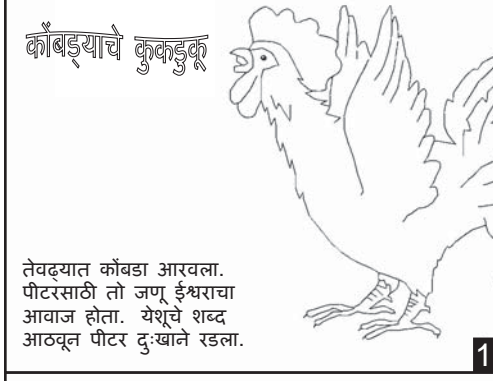 कोंबड्याचे कुकडुकू
तेवढ्यात कोंबडा आरवला.
पीटरसाठी तो जणू ईश्वराचा
आवाज होता. येशूचे शब्द
आठवून पीटर दुःखाने रडला.
1